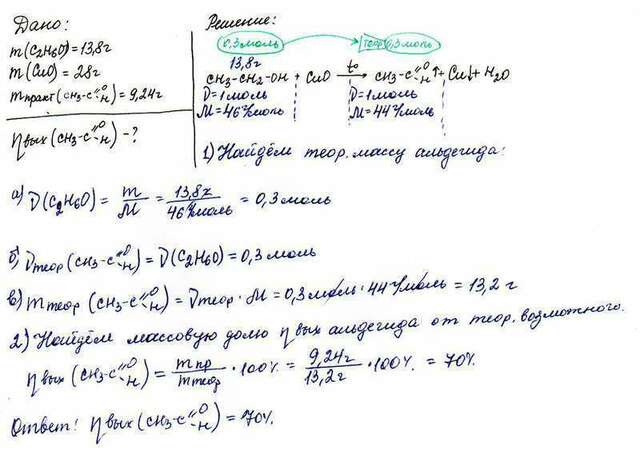 Дано:
m(C2H6O) = 13,8г
m(CuO) = 28г
mпракт(CH3-C=O H) = 9,24г
ηвых(CH3-C=O H) - ?
Решение:
0,3моль теор. 0,3моль
13,8г
CH3-CH2-OH + CuO t° → CH3-C=O H↑ + Cu↓ + H2O
ν=1моль ν=1моль
M=46г/моль M=44г/моль
1) Найдём теор. массу альдегида:
а) ν(C2H6O) = m/M = 13,8г/46г/моль = 0,3моль
б) νтеор(CH3-C=O H) = ν(C2H6O) = 0,3моль
в) mтеор(CH3-C=O H) = νтеор · M = 0,3моль · 44г/моль = 13,2г
2) Найдём массовую долю ηвых альдегида от теор. возможного.
ηвых(CH3-C=O H) = mпр/mтеор · 100% = 9,24г/13,2г · 100% = 70%
Ответ: ηвых(CH3-C=O H) = 70%.